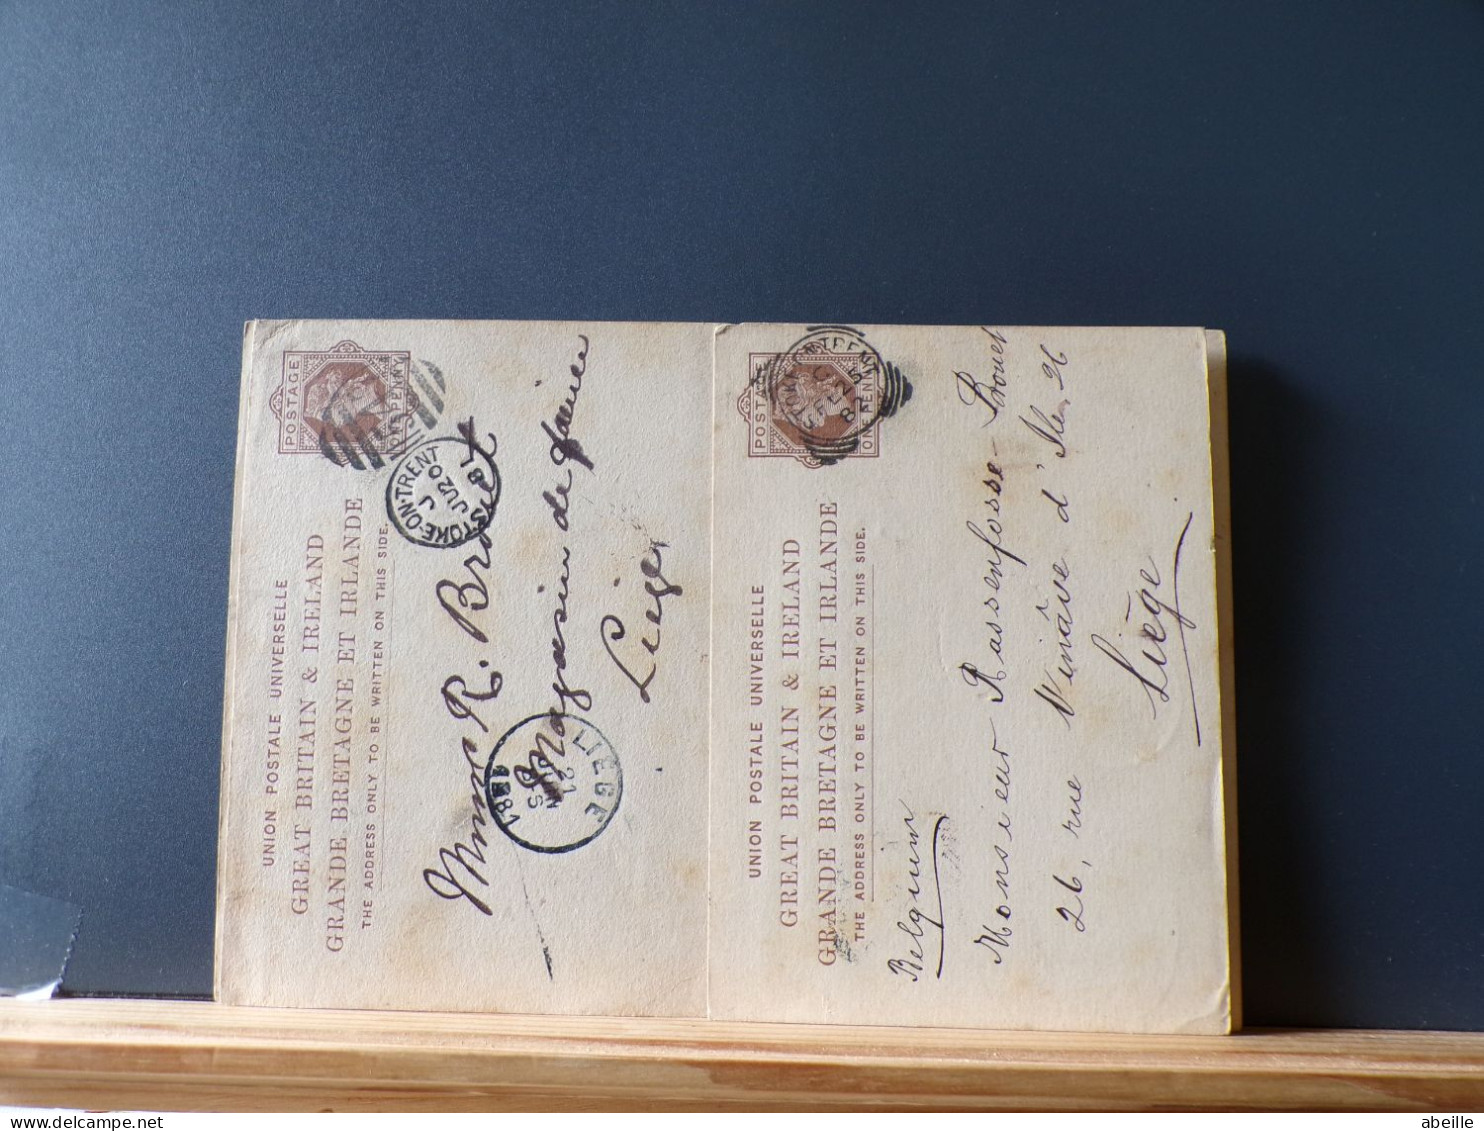 UNION POSTALE UNIVERSELLE
GREAT BRITAIN & IRELAND
GRANDE BRETAGNE ET IRLANDE
THE ADDRESS ONLY TO BE WRITTEN ON THIS SIDE.
POSTAGE
ONE PENNY
STOKE-ON-TRENT
J
JU 20
81
R.
Magasin de
Liège
LIEGE
21
JUIN
1881
UNION POSTALE UNIVERSELLE
GREAT BRITAIN & IRELAND
GRANDE BRETAGNE ET IRLANDE
THE ADDRESS ONLY TO BE WRITTEN ON THIS SIDE.
POSTAGE
ONE PENNY
STOKE-ON-TRENT
82
Belgium
Monsieur Rassenfosse-Brouet
26, rue Vinâve d'Ile, 26
Liège
abeille